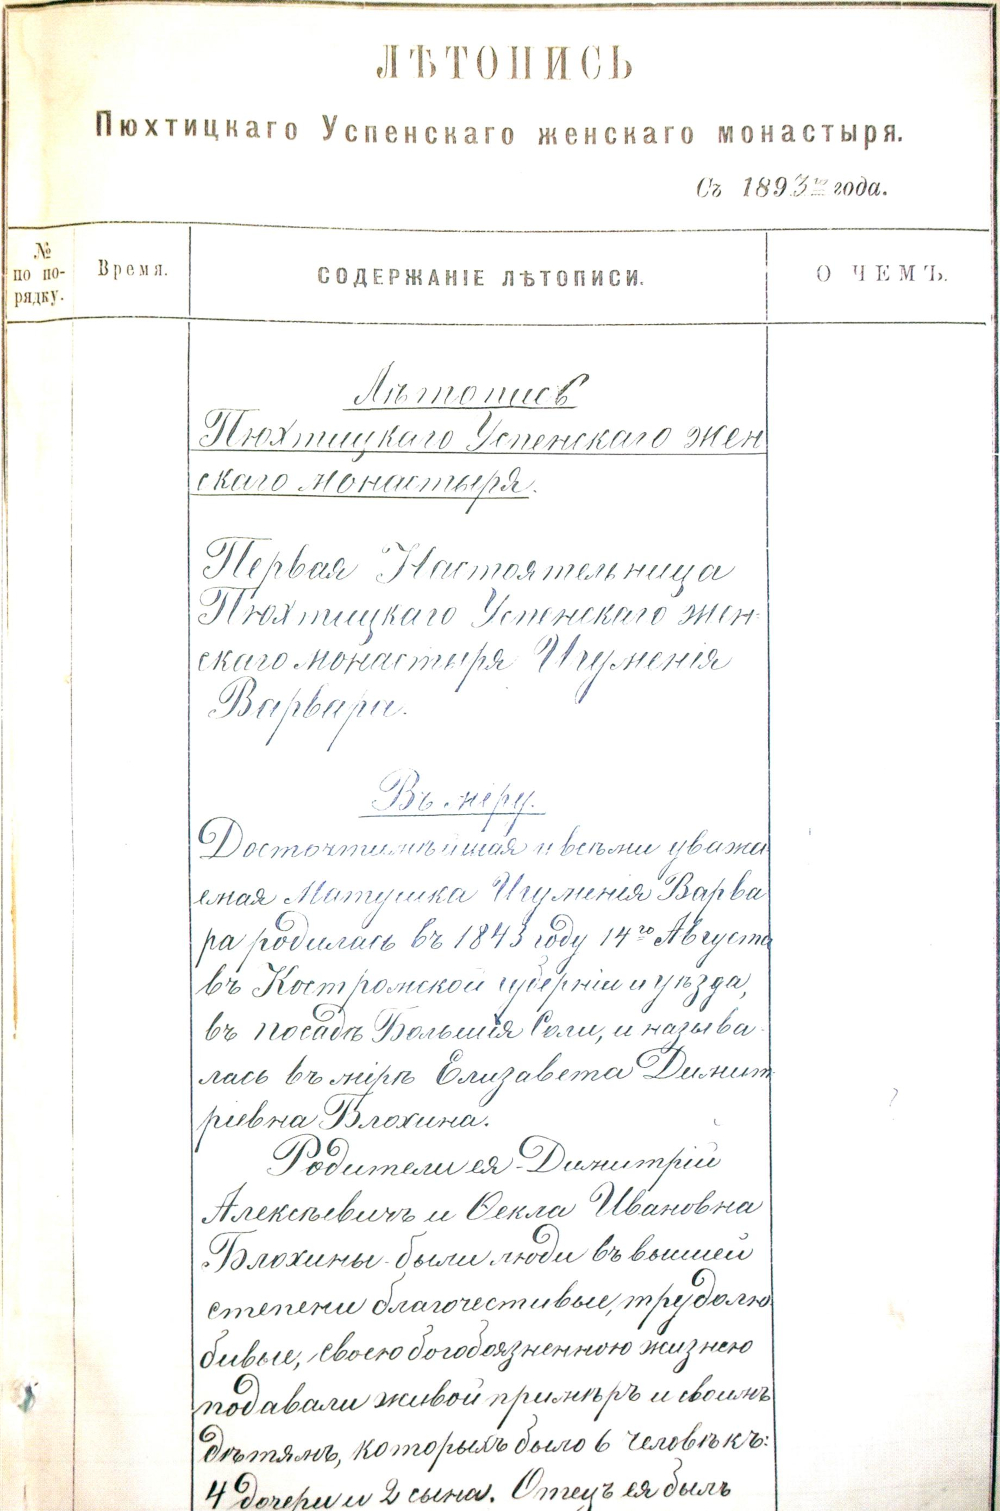 ЛѢТОПИСЬ
Пюхтицкаго Успенскаго женскаго монастыря.
Съ 1893го года.
№ по по-рядку.
Время.
СОДЕРЖАНІЕ ЛѢТОПИСИ.
О ЧЕМЪ.
Лѣтопись
Пюхтицкаго Успенскаго жен
скаго монастыря.
Первая Настоятельница
Пюхтицкаго Успенскаго жен-
скаго монастыря Игуменія
Варвара.
Въ міру.
Досточтимѣйшая и всѣми уважа
емая Матушка Игуменія Варва
ра родилась въ 1843 году 14го Августа
въ Костромской губерніи и уѣзда,
въ посадѣ Большія Соли, и называ-
лась въ мірѣ Елизавета Димит
ріевна Блохина.
Родители ея - Димитрій
Алексѣевичъ и Ѳекла Ивановна
Блохины - были люди въ высшей
степени благочестивые, трудолю
бивые, своею богобоязненною жизнею
подавали живой примѣръ и своимъ
дѣтямъ, которыхъ было 6 человѣкъ:
4 дочери и 2 сына. Отецъ ея былъ